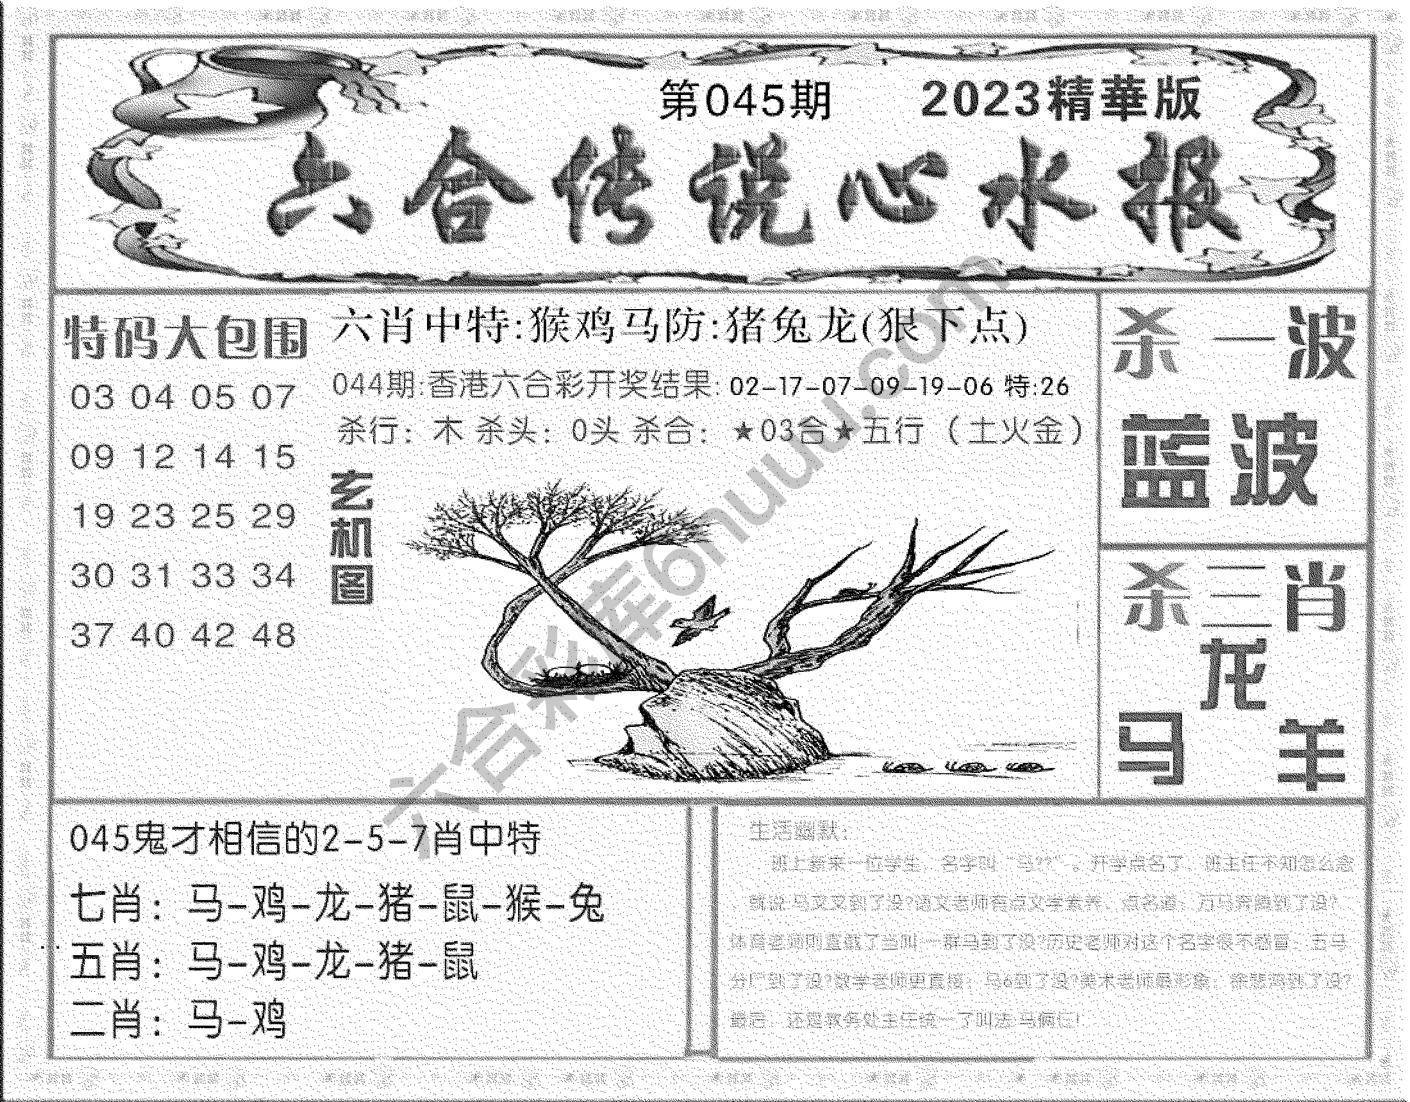 第045期 2023精華版
六合传说心水报
特码大包围
03 04 05 07
09 12 14 15
19 23 25 29
30 31 33 34
37 40 42 48
六肖中特:猴鸡马防:猪兔龙(狠下点)
044期:香港六合彩开奖结果: 02-17-07-09-19-06 特:26
杀行：木 杀头：0头 杀合：★03合★五行（土火金）
玄机图
杀一波
蓝波
杀三肖
龙
马 羊
六合彩库6huuu.com
045鬼才相信的2-5-7肖中特
七肖：马-鸡-龙-猪-鼠-猴-兔
五肖：马-鸡-龙-猪-鼠
二肖：马-鸡
生活幽默：
班上新来一位学生，名字叫“马??”。开学点名了，班主任不知怎么念
，就说:马叉叉到了没?语文老师有点文学素养，点名道：万马奔腾到了没?
体育老师则直截了当叫:一群马到了没?历史老师对这个名字很不感冒：五马
分尸到了没?数学老师更直接：马6到了没?美术老师最形象：徐悲鸿到了没?
最后，还是教务处主任统一了叫法:马俩仨!